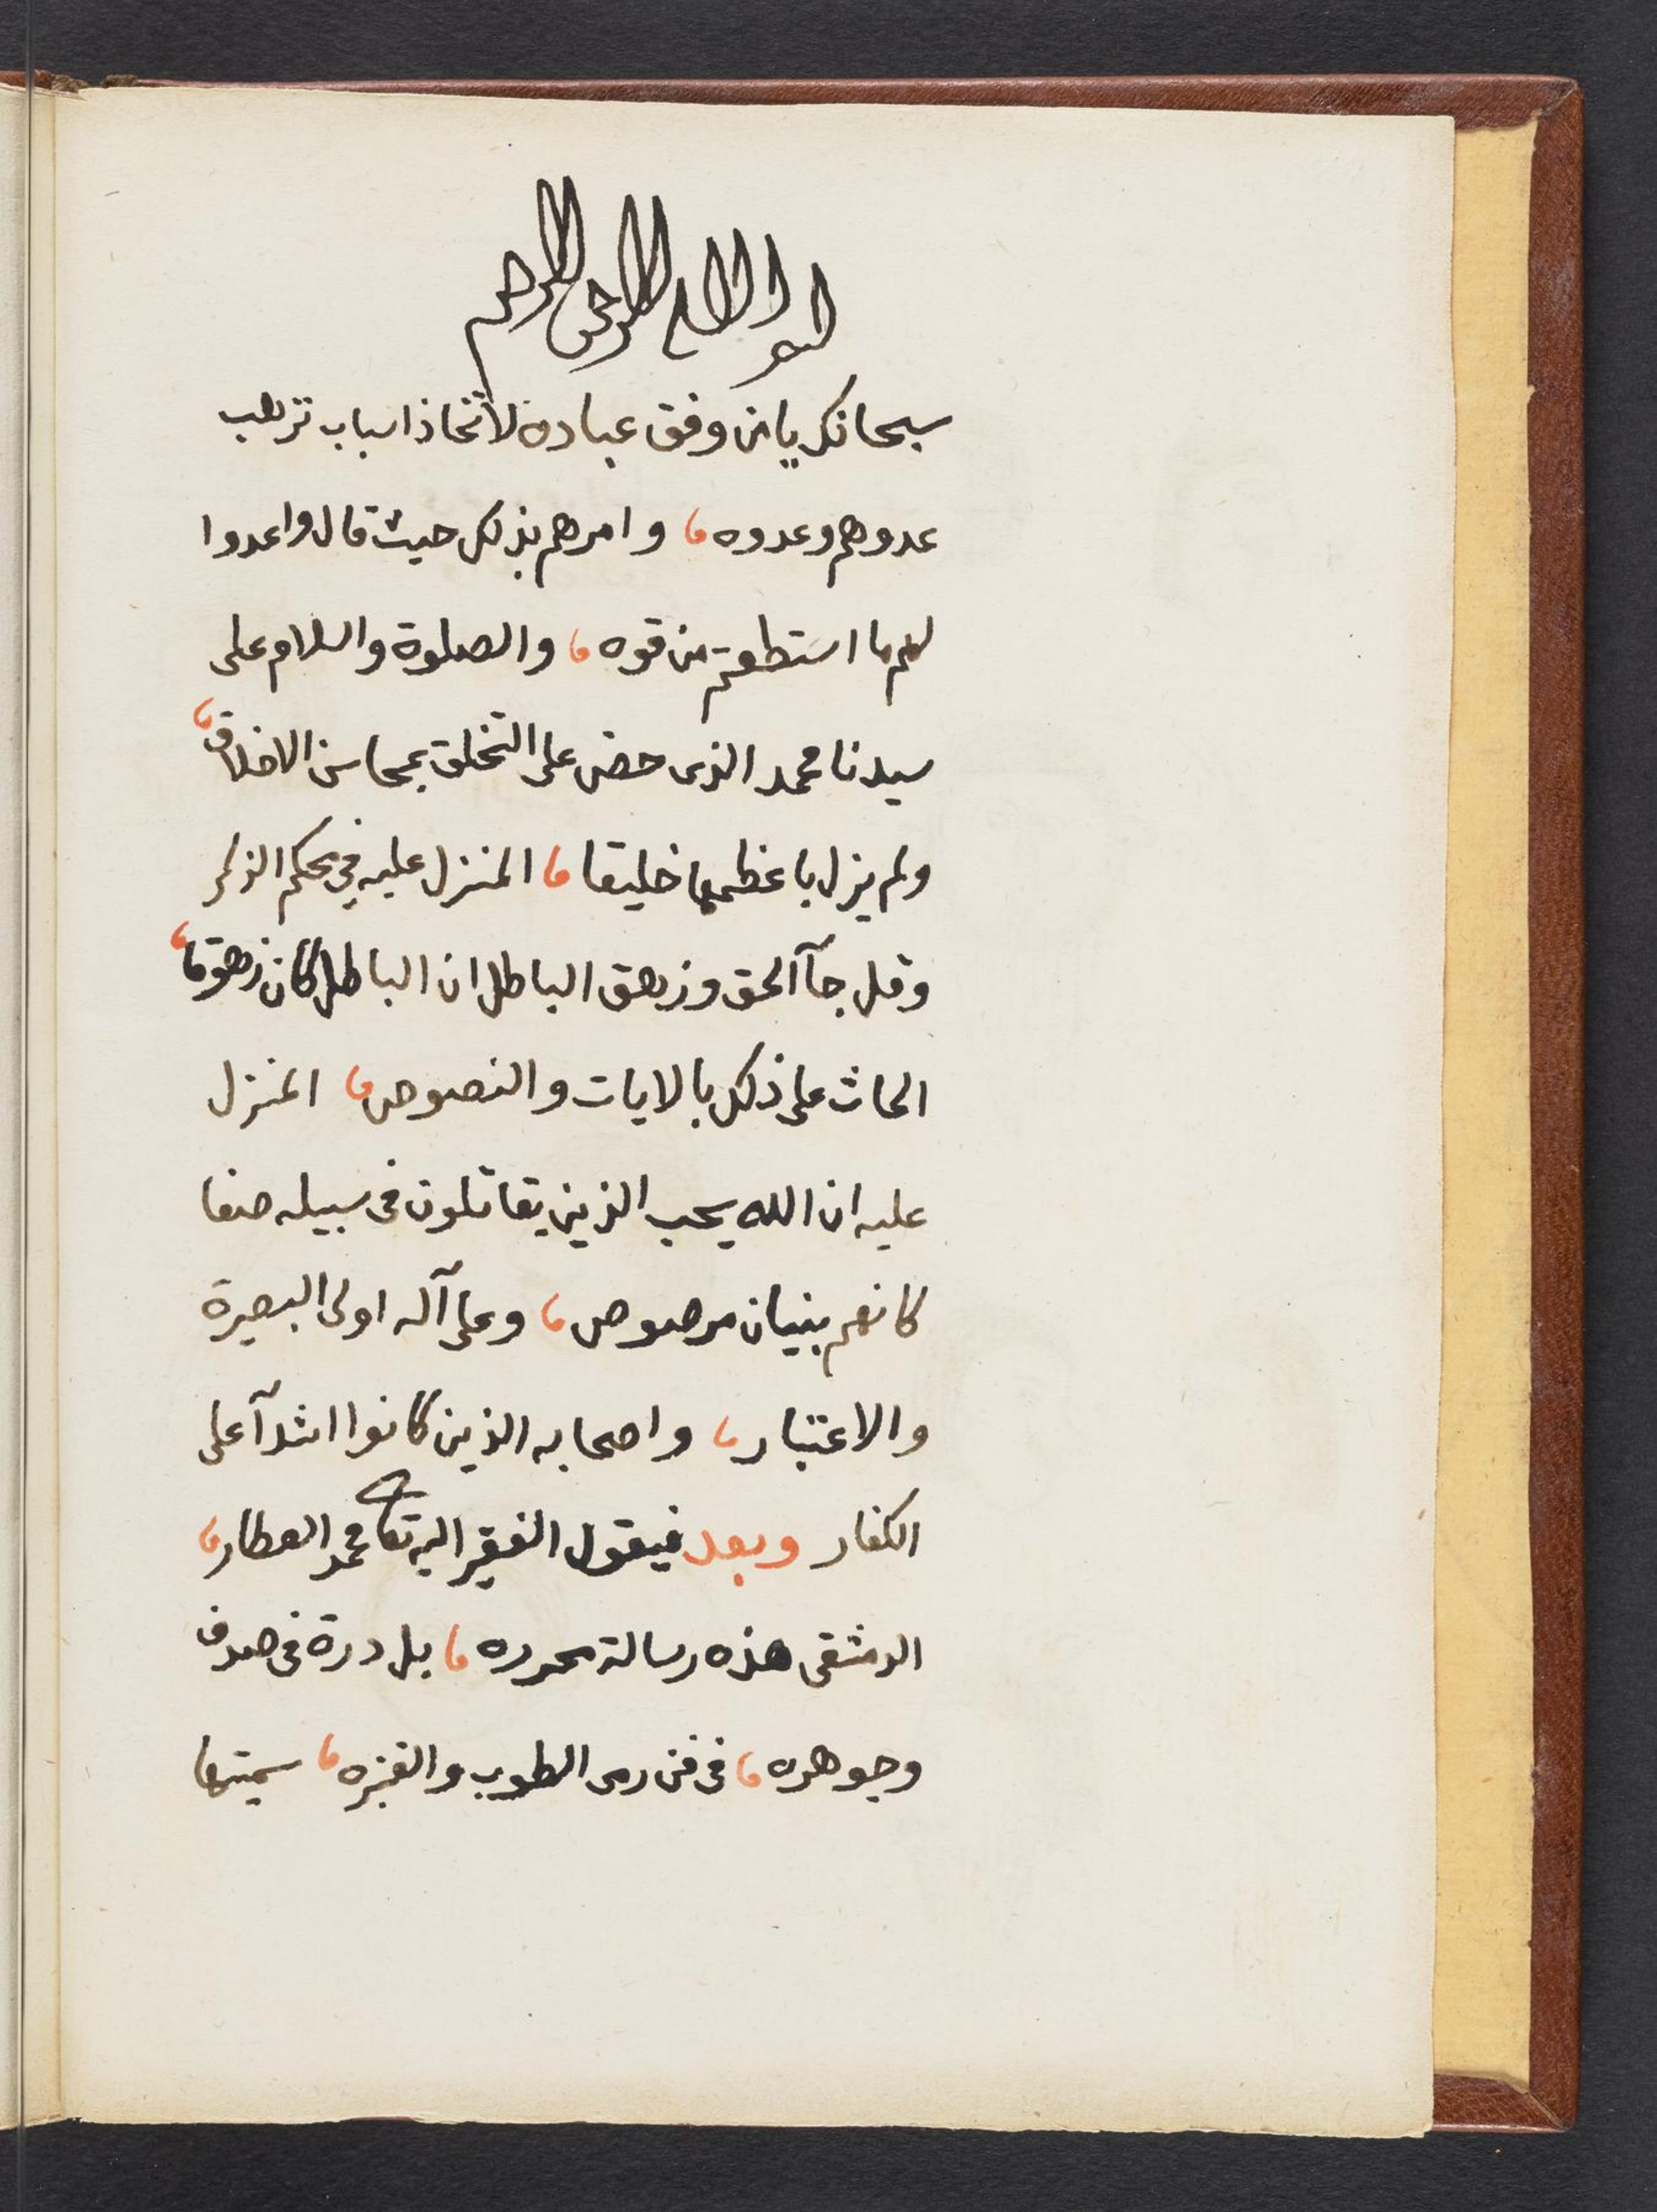 بسم الله الرحمن الرحيم
سبحانك يا من وفق عباده لاتخاذ اسباب ترهب
عدوهم وعدوه، وامرهم بذلك حيث قال واعدوا
لهم ما استطعتم من قوه، والصلوة والسلام على
سيدنا محمد الذى حض على التخلق بمحاسن الاخلاق،
ولم يزل باعظمها خليقا، المنزل عليه في محكم الذكر
وقل جآ الحق وزهق الباطل ان الباطل كان زهوقا،
الحاث على ذلك بالايات والنصوص، المنزل
عليه ان الله يحب الذين يقاتلون فى سبيله صفا
كانهم بنيان مرصوص، وعلى آله اولى البصيرة
والاعتبار، واصحابه الذين كانوا اشدآ على
الكفار وبعد فيقول الفقير اليه تعا محمد العطار،
الدمشقى هذه رسالة محرره، بل درة فى صدف
وجوهره، فى فن رمى الطوب والقنبره، سميتها